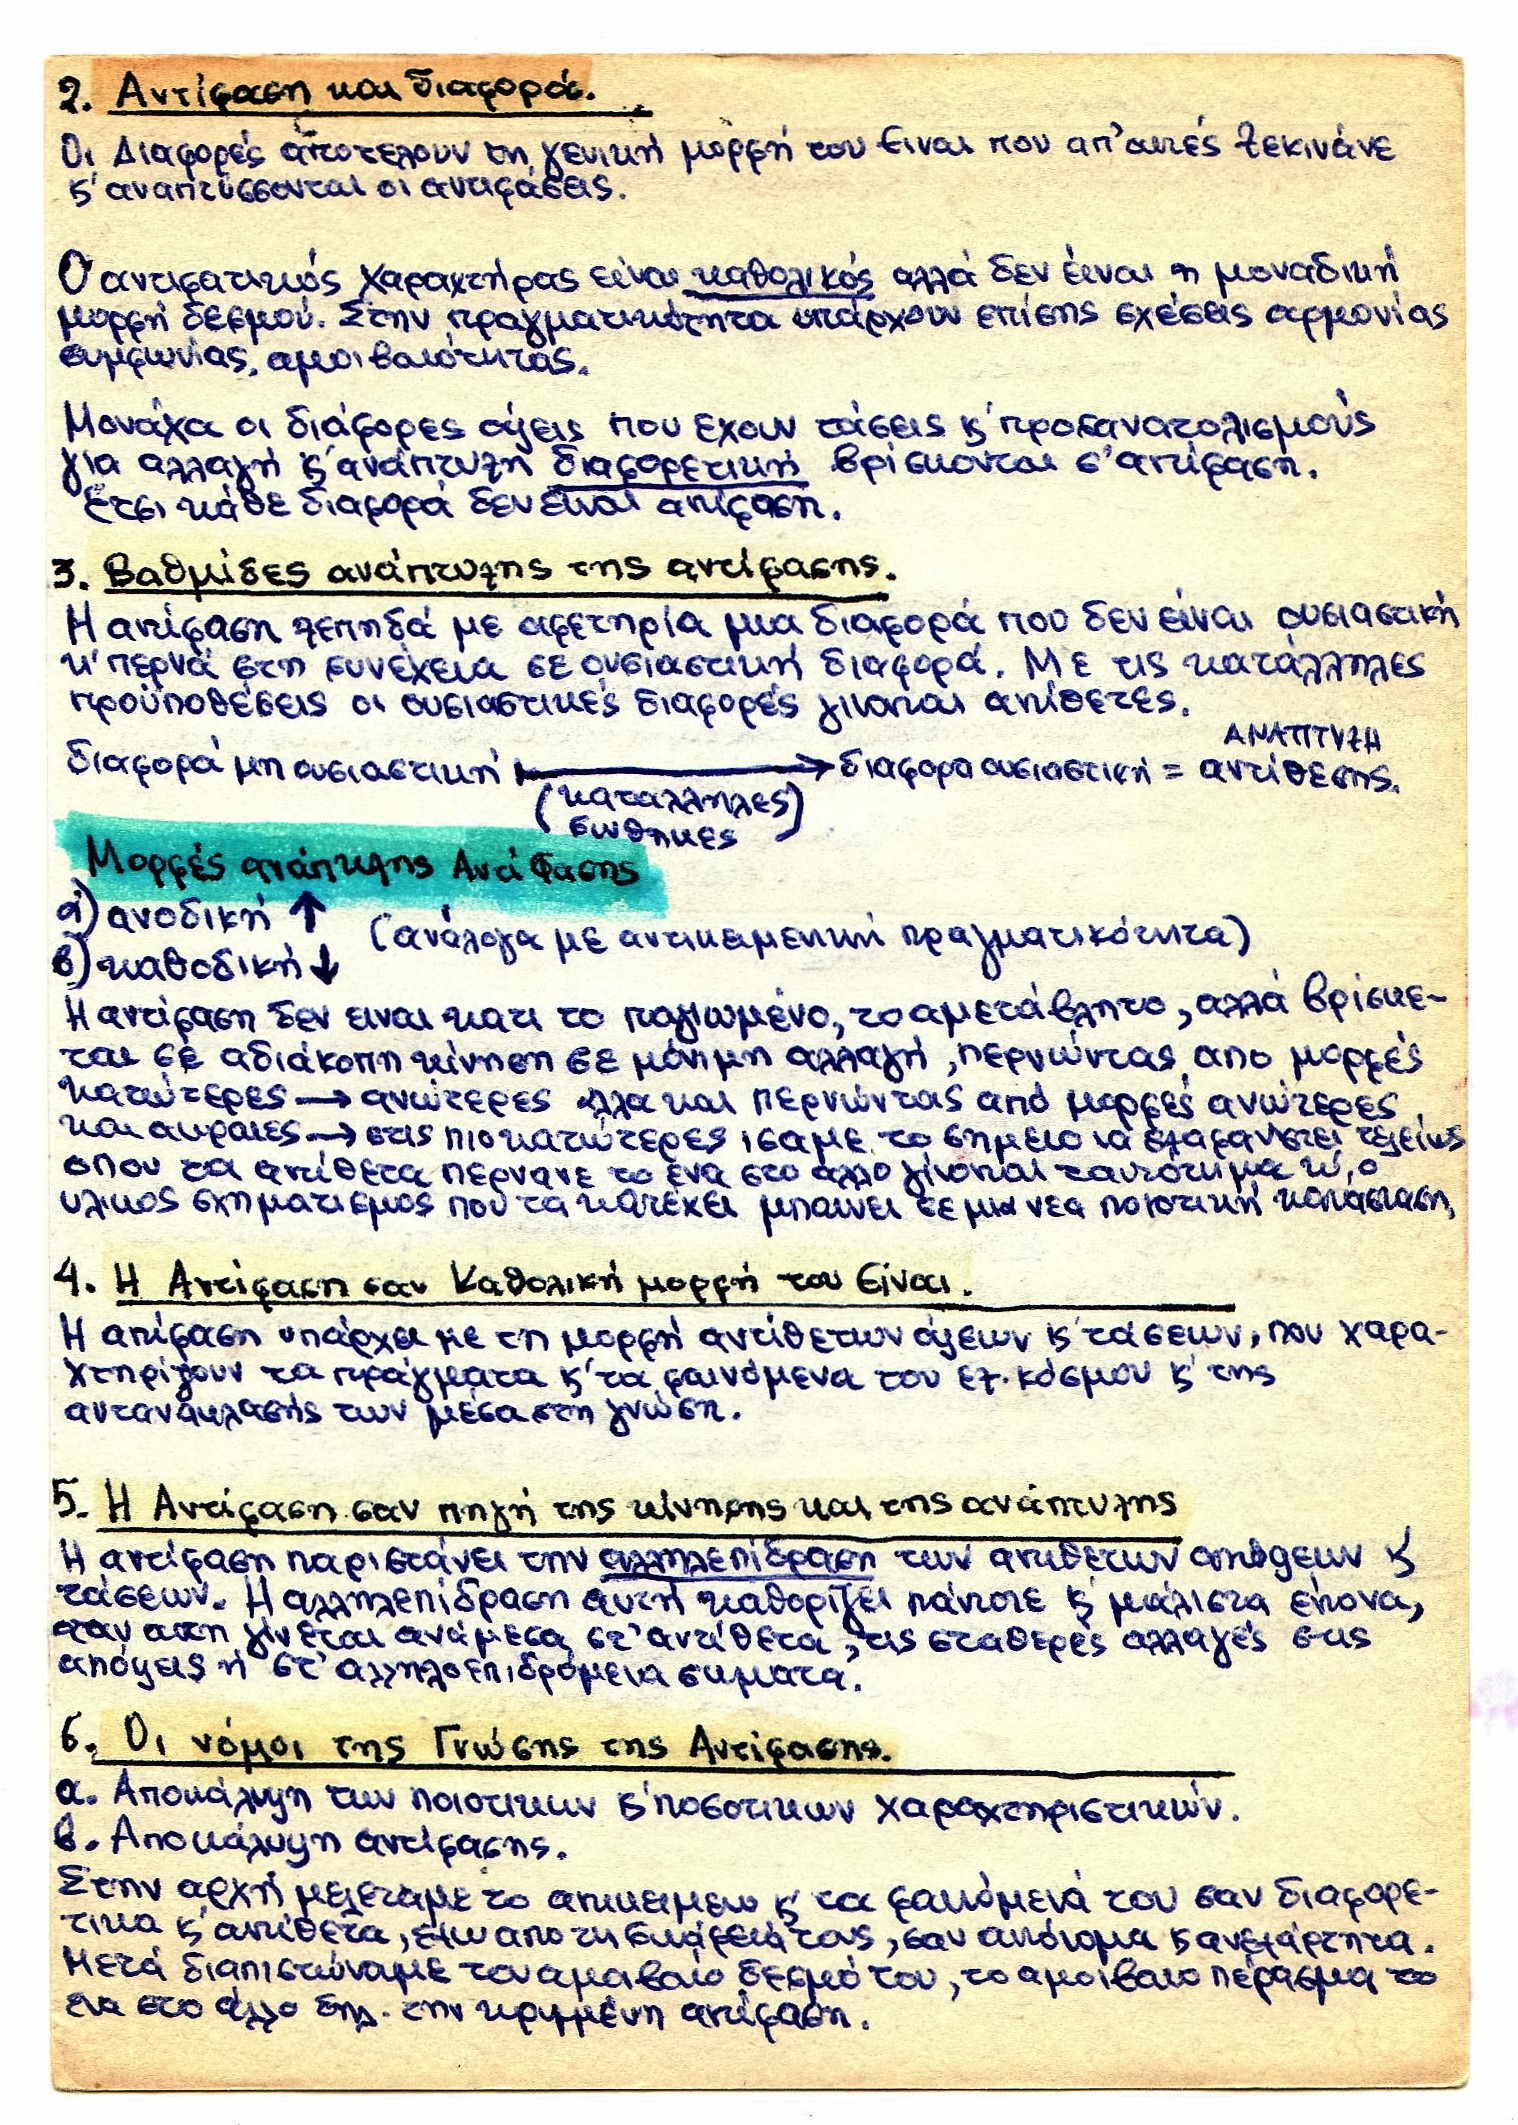 2. Αντίφαση και διαφορά.
Οι Διαφορές αποτελουν τη γενική μορφή του Ειναι που απ'αυτές ξεκινάνε
κ' αναπτύσσονται οι αντιφάσεις.
Ο αντιφατικός χαραχτήρας είναι καθολικός αλλά δεν είναι η μοναδική
μορφή δεσμού. Στην πραγματικότητα υπάρχουν επίσης σχέσεις αρμονίας
συμφωνίας, αμοιβαιότητας.
Μονάχα οι διάφορες όψεις που έχουν τάσεις κ' προσανατολισμούς
για αλλαγή κ' ανάπτυξη διαφορετική βρίσκονται σ' αντίφαση.
Έτσι κάθε διαφορά δεν είναι αντίφαση.
3. Βαθμίδες ανάπτυξης της αντίφασης.
Η αντίφαση ξεπηδά με αφετηρία μια διαφορά που δεν είναι ουσιαστική
κ' περνά στη συνέχεια σε ουσιαστική διαφορά. Με τις κατάλληλες
προϋποθέσεις οι ουσιαστικές διαφορές γίνονται αντίθετες.
ΑΝΑΠΤΥΞΗ
διαφορά μη ουσιαστική → διαφορα ουσιαστική = αντίθεσης.
(καταλληλες)
συνθηκες
Μορφές ανάπτυξης Αντίφασης
α) ανοδική ↑
(ανάλογα με αντικειμενική πραγματικότητα)
β) καθοδική ↓
Η αντίφαση δεν ειναι κατι το παγιωμένο, το αμετάβλητο, αλλά βρίσκε-
ται σέ αδιάκοπη κίνηση σε μόνιμη αλλαγή, περνώντας απο μορφές
κατώτερες → ανώτερες αλλα και περνώντας από μορφές ανώτερες
και ακραιες → στις πιο κατώτερες, ισαμε το σημειο να εξαφανιστει τελείως
οπου τα αντίθετα περνανε το ένα στο άλλο γίνονται ταυτόσημα κ' ο
υλικος σχηματισμος που τα κατέχει μπαινει σε μια νεα ποιοτική κατάσταση,
4. Η Αντίφαση σαν Καθολική μορφή του Είναι.
Η αντίφαση υπάρχει με τη μορφή αντίθετων όψεων κ' τάσεων, που χαρα-
χτηρίζουν τα πράγματα κ' τα φαινόμενα του εξ. κόσμου κ' της
αντανάκλασής των μέσα στη γνώση.
5. Η Αντίφαση σαν πηγή της κίνησης και της ανάπτυξης
Η αντίφαση παριστάνει την αλληλεπίδραση των αντιθέτων απόψεων κ'
τάσεων. Η αλληλεπίδραση αυτή καθορίζει πάντοτε κ' μάλιστα έντονα,
σαν αυτη γίνεται ανάμεσα στ' αντίθετα, τις σταθερές αλλαγές στις
απόψεις ή στ' αλληλοεπιδρόμενα σωματα.
6. Οι νόμοι της Γνώσης της Αντίφασης.
α. Αποκάλυψη των ποιοτικων κ' ποσοτικων χαραχτηριστικών.
β. Αποκάλυψη αντίφασης.
Στην αρχή μελετάμε το αντικειμενο κ' τα φαινόμενά του σαν διαφορε-
τικα κ' αντίθετα, έξω απο τη συνάφειά τους, σαν αυτόνομα κ ανεξάρτητα.
Μετά διαπιστώναμε τον αμοιβαίο δεσμό του, το αμοιβαιο πέρασμα το
ένα στο άλλο δηλ. την κρυμμένη αντίφαση.